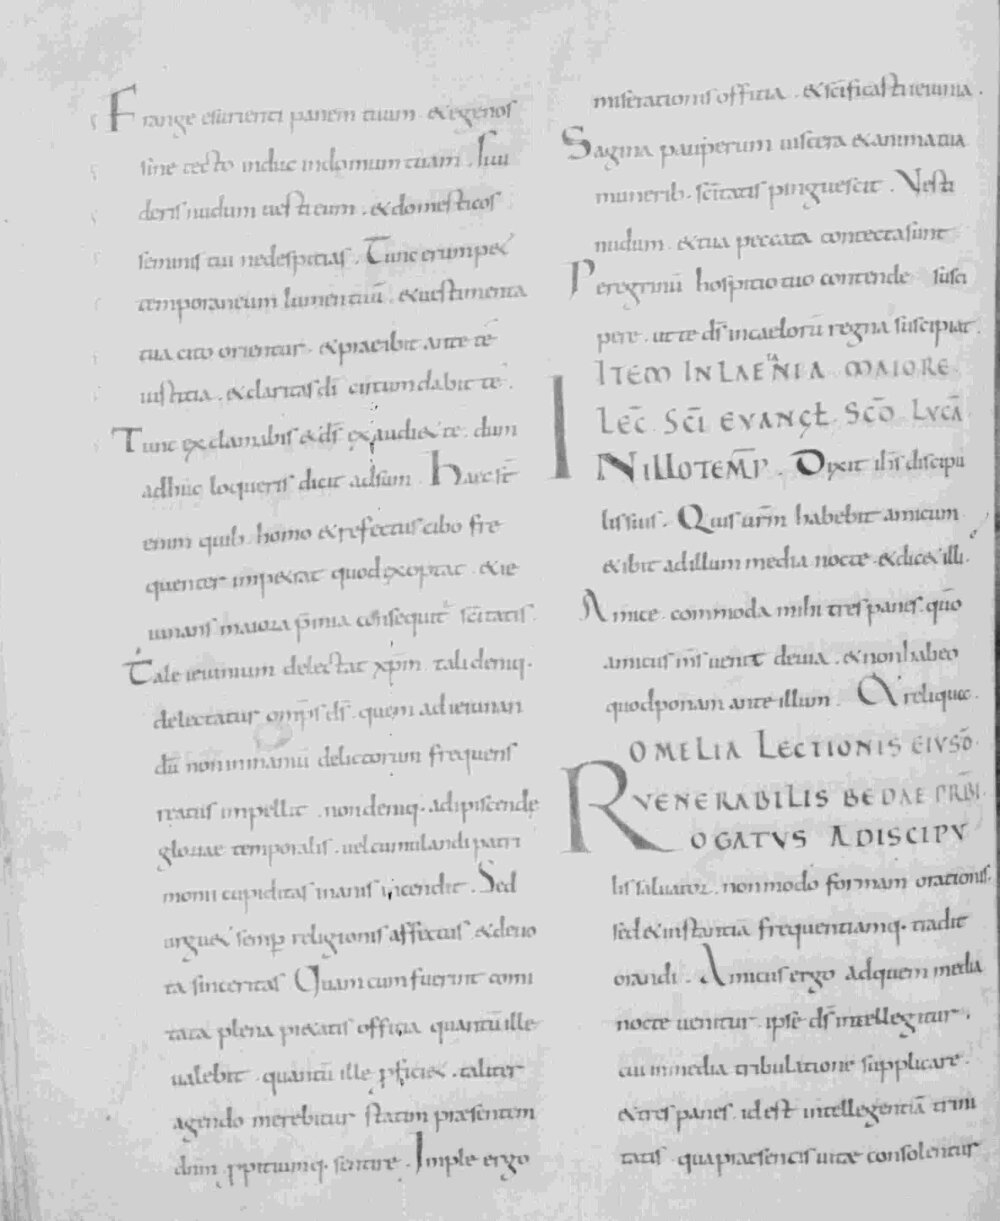 Frange esurienti panem tuum . & egenos
sine tecto induc indomum tuam . Si ui
deris nudum uesti eum . & domesticos
seminis tui nedespicias . Tunc erumpet
temporaneum lumen tuū . & uestimenta
tua cito orientur . & praeibit ante te
iustitia . & claritas dī circumdabit te .
Tunc exclamabis & ds̄ exaudiet te . dum
adhuc loqueris dicit adsum . Haec st̄
enim quib . homo & refectus cibo fre
quenter impetrat quod exoptat . & ie
iunans maiora p̄mia consequit sc̄itatis .
Tale ieiunium delectat xp̄m . tali deniq .
delectatur omp̄s ds̄ . quem ad ieiunan
dū non inmanium delictorum frequens
reatus impellit . non deniq . adipiscende
gloriae temporalis . uel cumulandi patri
monii cupiditas inanis incendit . Sed
arguet semp religionis affectus & deuo
ta sinceritas Quam cum fuerint comi
tata plena pietatis officia quantū ille
ualebit . quantū ille pficiet . taliter
agendo merebitur statim praesentem
dnm ppitiumq . sentire . Imple ergo
miserationis officia . & sc̄ificasti ieiunia .
Sagina pauperum uiscera & anima tua
munerib . sc̄itatis pinguescit . Vesti
nudum . & tua peccata contecta sunt
Peregrinū hospitio tuo contende susci
pere . ut te ds̄ in caelorū regna suscipiat .
ITEM IN LAETANIA MAIORE
LEC̄ . SC̄I EVANGL̄ . SC̄D . LVCĀ
IN ILLO TEMP̄ . Dixit ih̄s discipu
lis suis . Quis urm̄ habebit amicum
& ibit ad illum media nocte . & dicet illi .
Amice . commoda mihi tres panes . quō
amicus ms̄ uenit de uia . & non habeo
quod ponam ante illum . Et reliqua .
OMELIA LECTIONIS EIVSD̄ .
VENERABILIS BEDAE PRB̄I .
ROGATVS A DISCIPV
lis saluator . non modo formam orationis .
sed & instantiā frequentiamq . tradit
orandi . Amicus ergo ad quem media
nocte uenitur . ipse ds̄ intellegitur .
cui in media tribulatione supplicare .
& tres panes . id est intellegentiā trini
tatis . qua praesentis uitae consolentur